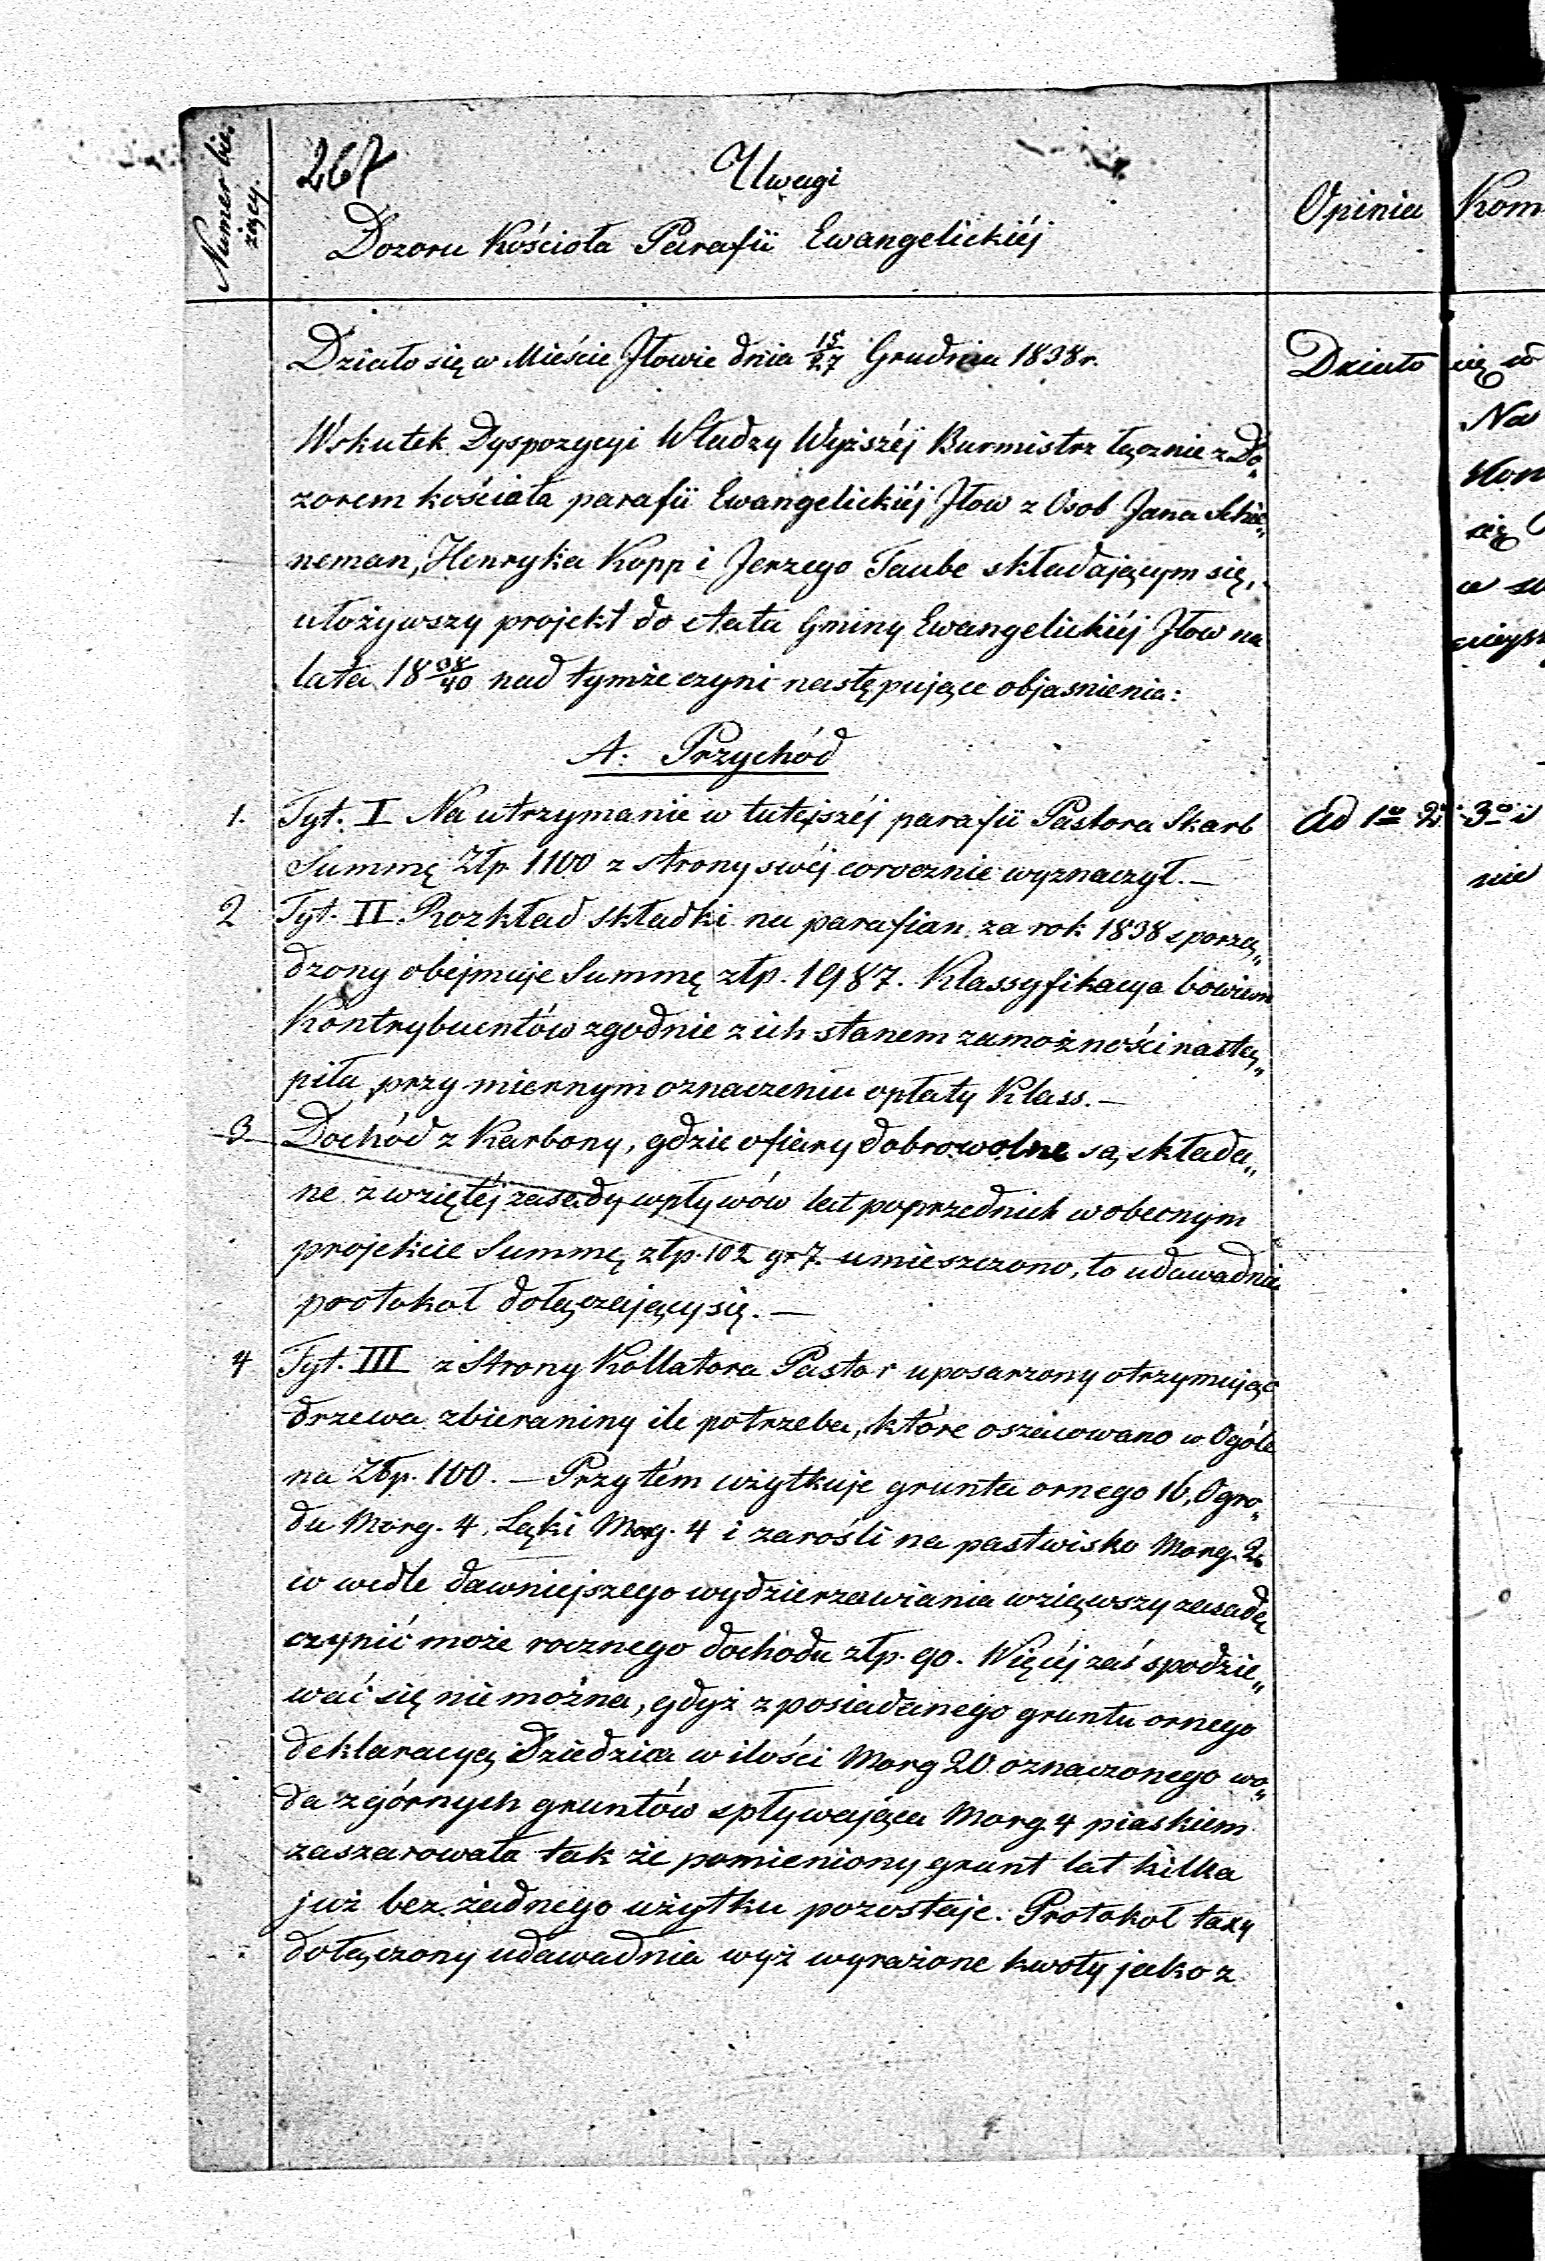 Numer bie-
żący.
267
Uwagi
Dozoru Kościoła Parafii Ewangelickiéj
Opinia
Kom
Działo się w Mieście Jłowie dnia 15/27 Grudnia 1838 r.
Działo
się w
Wskutek Dyspozycyi Władzy Wyższéj Burmistrz łącznie z Do„
Na
zorem kościoła parafii Ewangelickiéj Jłow z Osob Jana Schie„
Kom
neman, Henryka Kopp i Jerzego Taube składającym się,
się
ułożywszy projekt do etatu Gminy Ewangelickiéj Jłow na
lata 18 38/40 nad tymże czyni następujące objasnienia:
A: Przychód
1. Tyt. I Na utrzymanie w tutejszéj parafii Pastora Skarb
Ad 1o 2o 3o i
Summę Złp 1100 z strony swéj corocznie wyznaczył. —
nie
2 Tyt. II. Rozkład składki na parafian za rok 1838 sporzą„
dzony obejmuje Summę złp. 1987. Klassyfikacya bowiem
Kontrybuentów zgodnie z ich stanem zamożności nastą„
piła przy miernym oznaczeniu opłaty Klass. —
3 Dochód z Karbony, gdzie ofiary dobrowolne są składa„
ne z wziętéj zasady wpływów lat poprzednich w obecnym
projekcie Summę złp. 102 gr 7. umieszczono, to udawadnia
protokoł dołączający się. —
4 Tyt. III z Strony Kollatora Pastor uposarzony otrzymując
drzewa zbieraniny ile potrzeba, które oszacowano w Ogóle
na Złp. 100. — Przytém użytkuje gruntu ornego 16, Ogro„
du Morg. 4, Łąki Morg. 4 i zarośli na pastwisko Morg. 2
w wedle dawniejszego wydzierzawiania wziąwszy zasadę
czynić może rocznego dochodu złp. 90. Więcéj zaś spodzie„
wać się nie można, gdyż z posiadanego gruntu ornego
deklaracyą Dziedzica w ilości Morg 20 oznaczonego wo„
da z górnych gruntów spływająca Morg. 4 piaskiem
zaszarowała tak że pomieniony grunt lat kilka
już bez żadnego użytku pozostaje. Protokoł taxy
dołączony udawadnia wyż wyrażone kwoty jako z